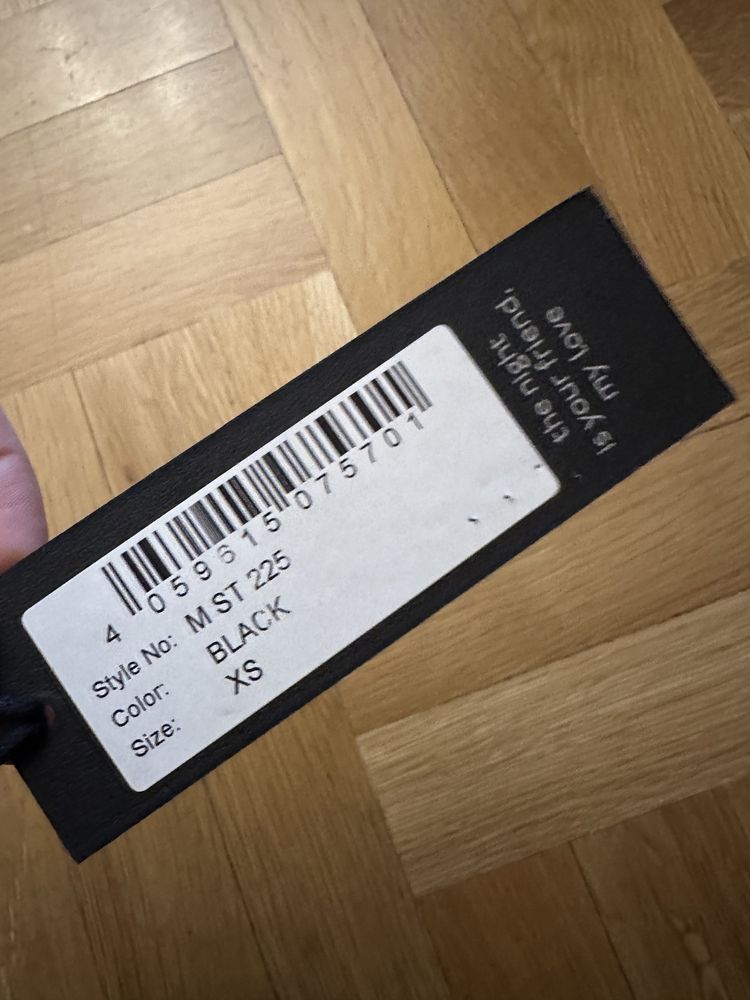 4 059615 075701
Style No: M ST 225
Color: BLACK
Size: XS
the night
is your friend,
my love